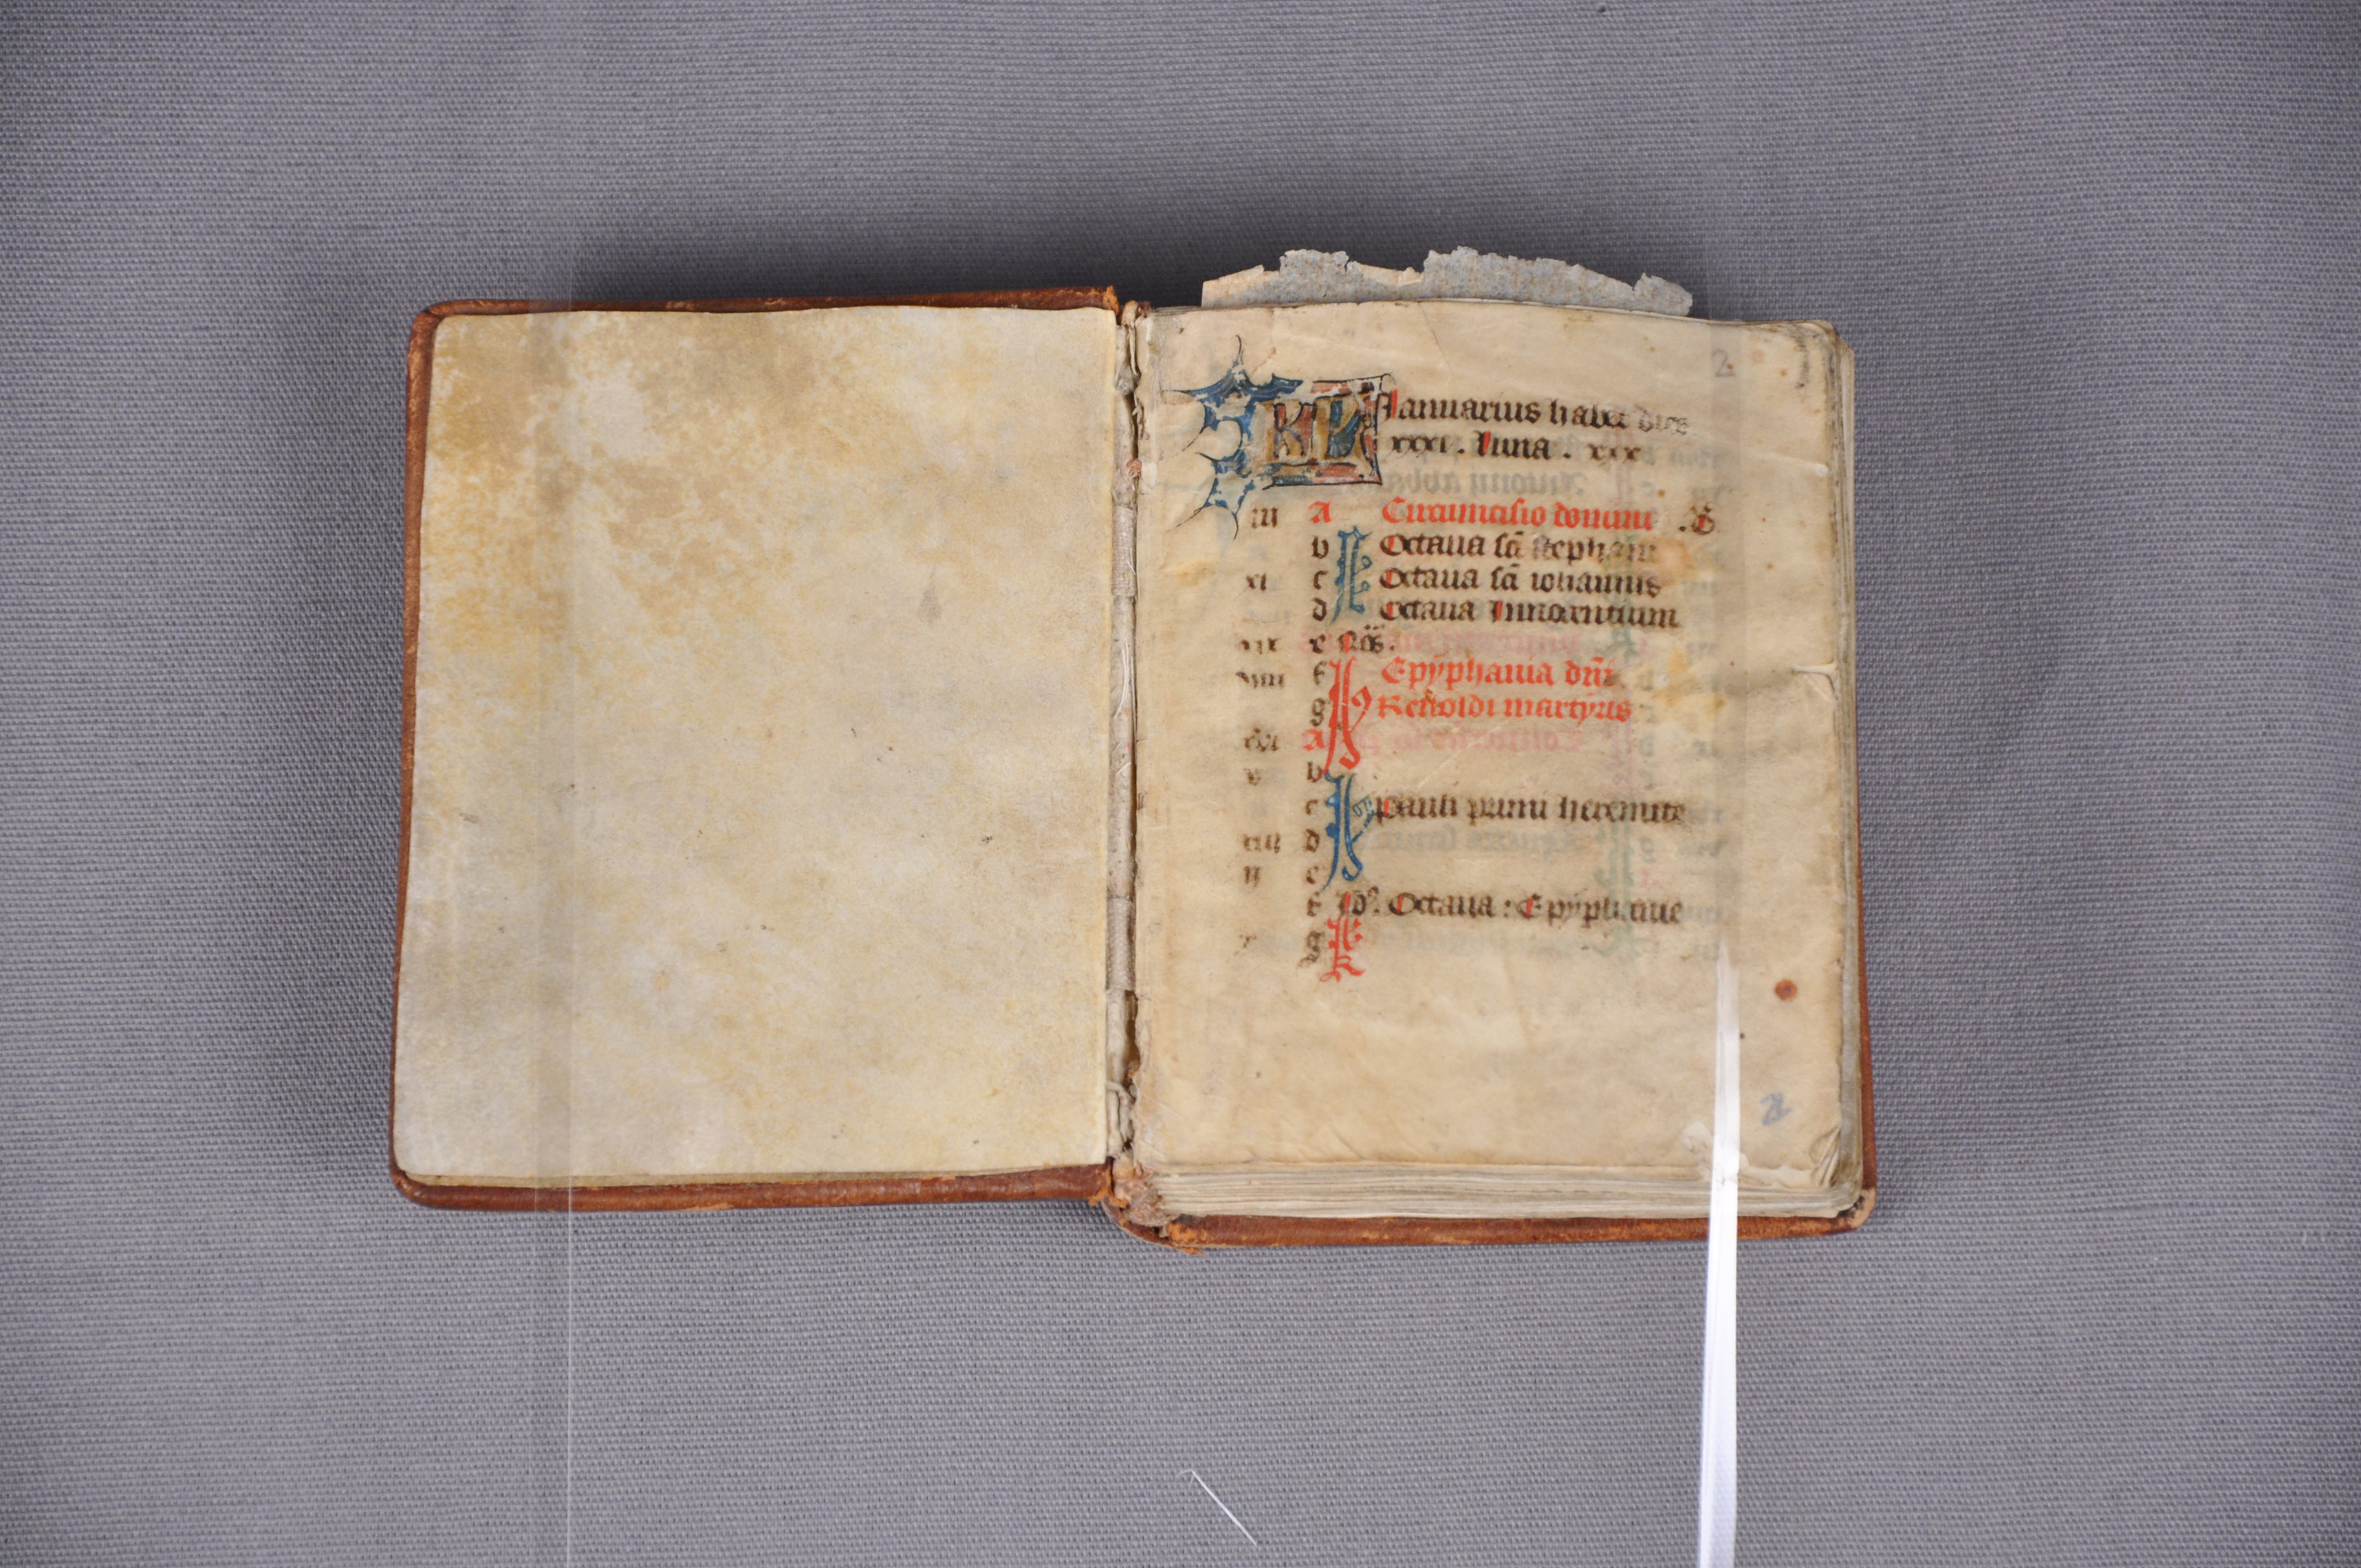 2
KL Ianuarius habet dies
xxxi . luna . xxx
iii A Circumcisio domini .
b Octaua sc̄i stephani
xi c Octaua sc̄i iohannis
d Octaua Innocentium
e Nōs.
viii f Epyphania dn̄i
g Reinoldi martyris
xvi A
v b
c pauli primi heremite
xiii d
ii e
f Id9. Octaua : Epyphanie
x g
2